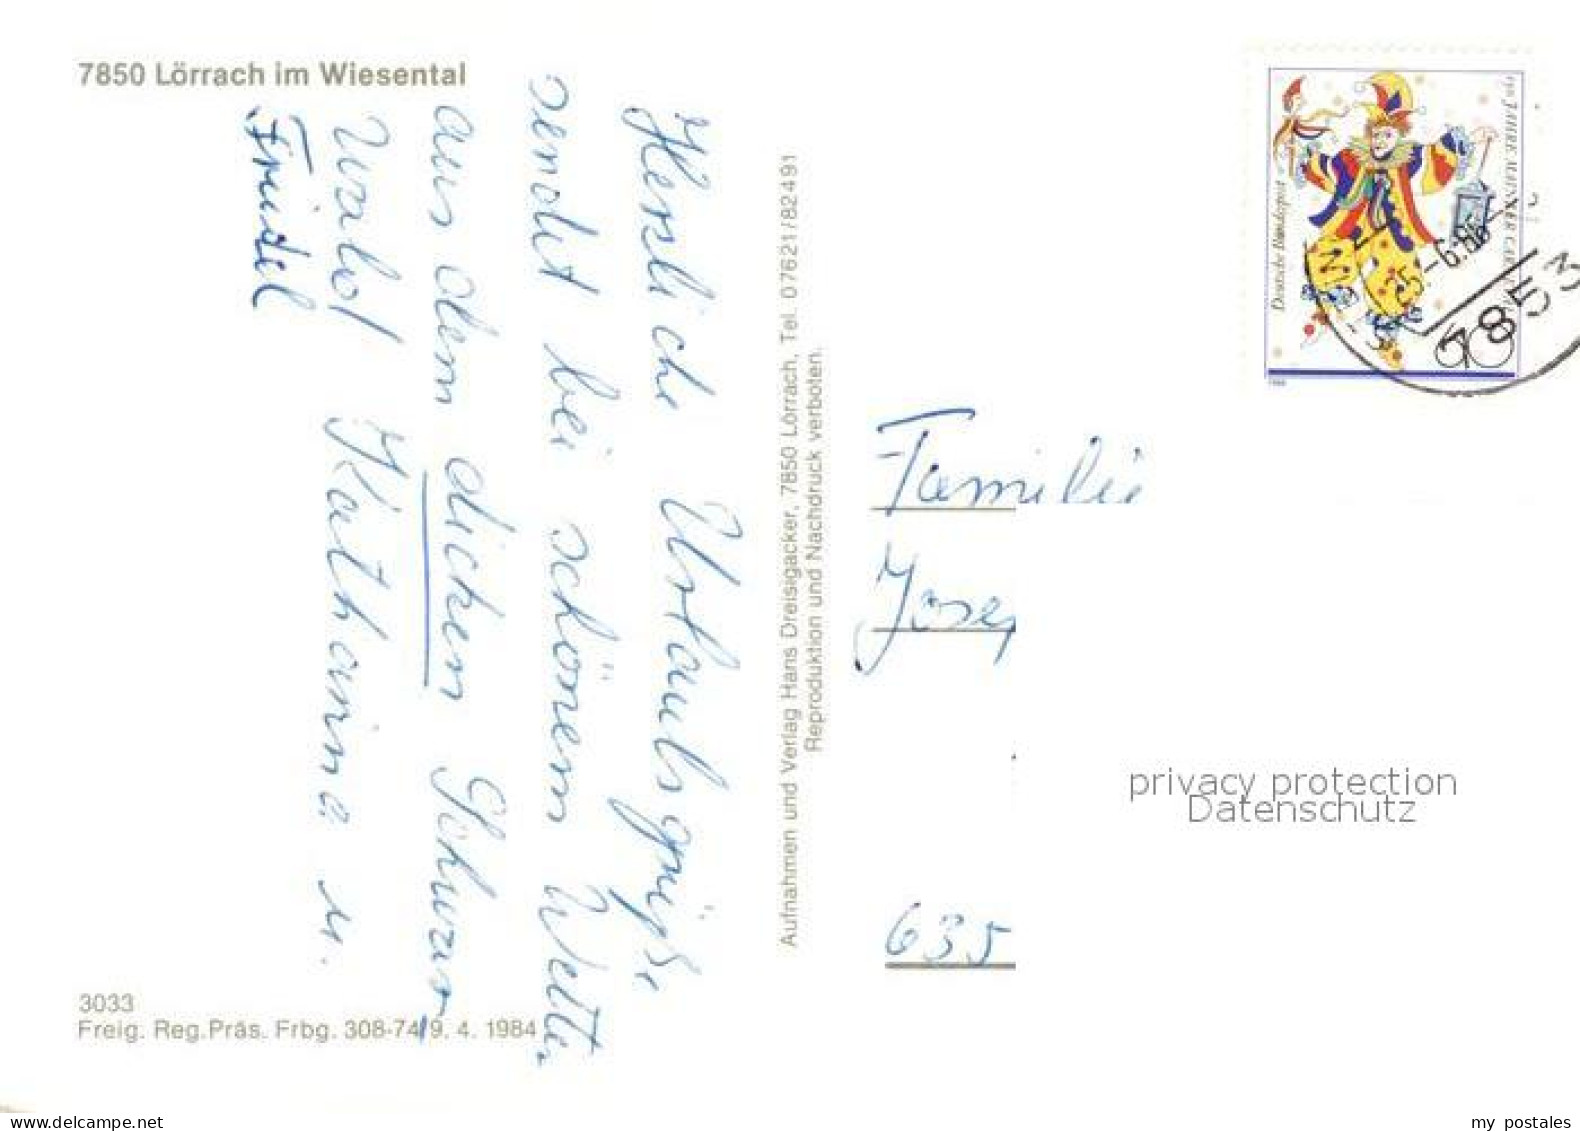 7850 Lörrach im Wiesental
Herzliche Urlaubsgrüße
sendet bei schönem Wetter
aus dem dicken Schwarz-
wald Katharina u.
Friedel
Aufnahmen und Verlag Hans Dreisigacker, 7850 Lörrach, Tel. 07621/82491
Reproduktion und Nachdruck verboten.
3033
Freig. Reg.Präs. Frbg. 308-74/9. 4. 1984
Deutsche Bundespost
150 JAHRE MAINZER
1988
7853
Familie
Josef
635
privacy protection
Datenschutz
www.delcampe.net
my_postales